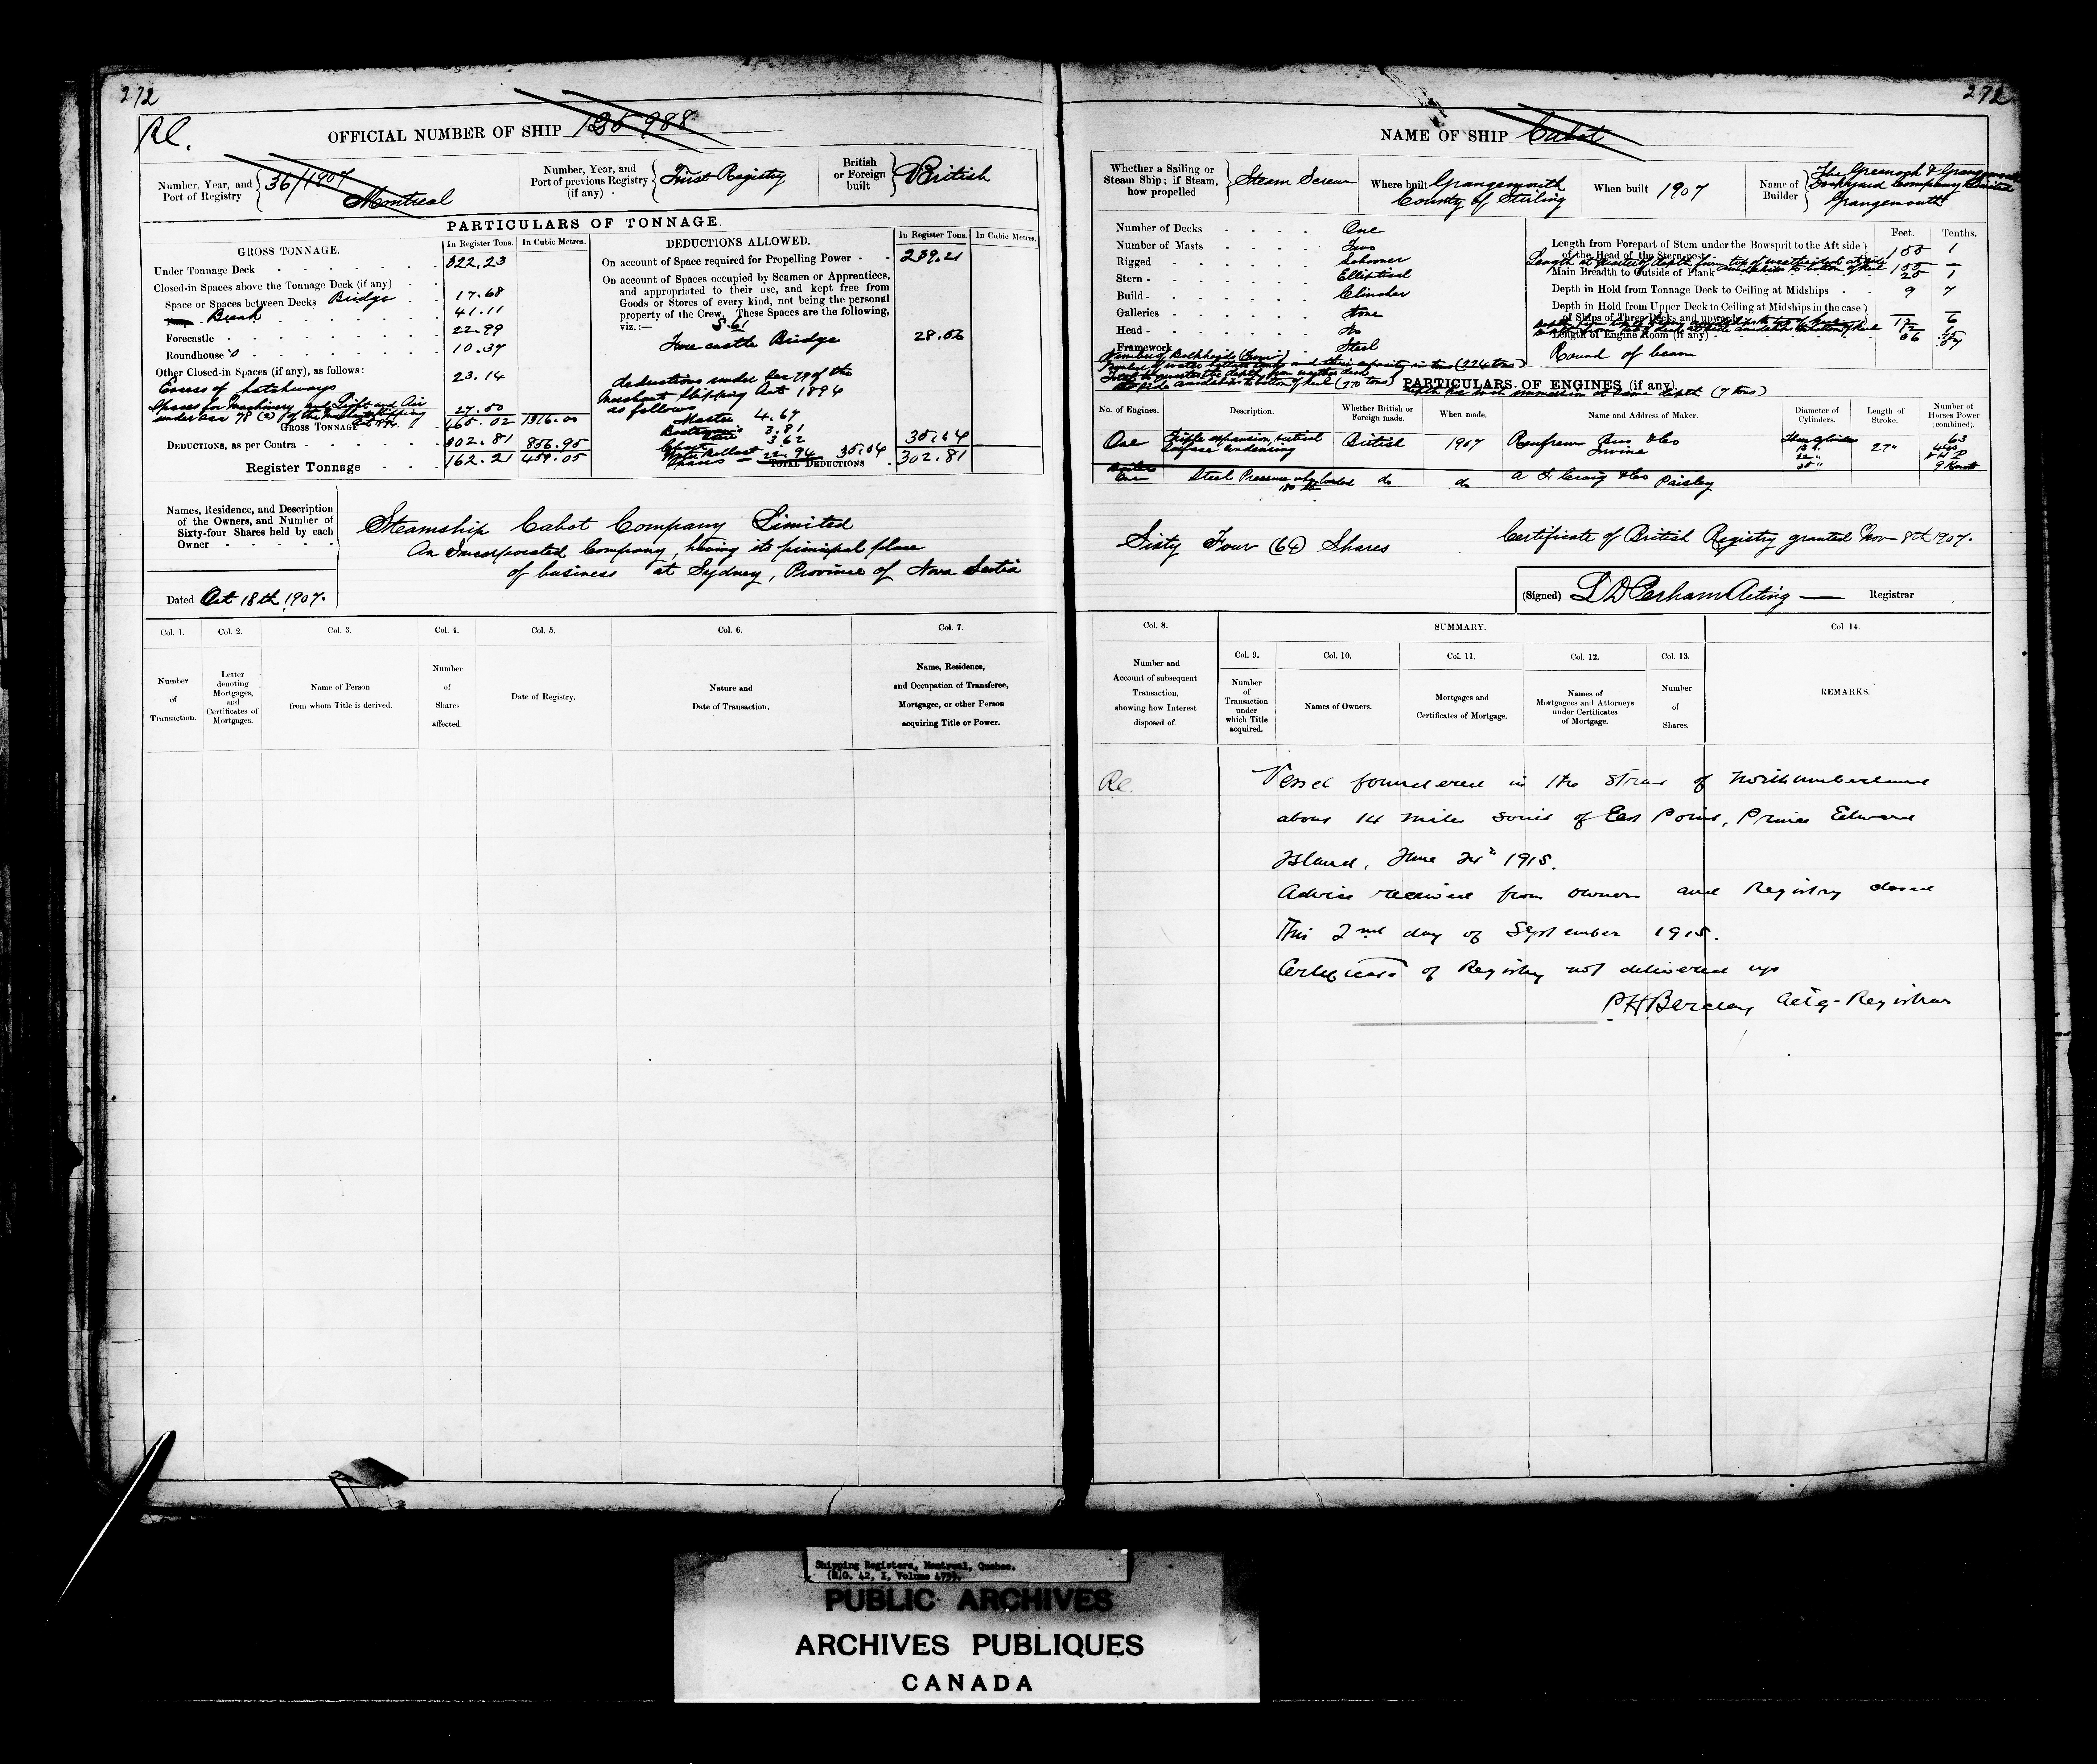 272
272
Rc.
OFFICIAL NUMBER OF SHIP 125 988
NAME OF SHIP Cabot
Number, Year, and Port of Registry 36/1907 Montreal
Number, Year, and Port of previous Registry (if any) First Registry
British or Foreign built British
PARTICULARS OF TONNAGE.
GROSS TONNAGE.
In Register Tons. In Cubic Metres.
Under Tonnage Deck 322.23
Closed-in Spaces above the Tonnage Deck (if any)
Space or Spaces between Decks Bridge 17.68
Break 41.11
Forecastle 22.99
Roundhouse 10.37
Other Closed-in Spaces (if any), as follows:
Excess of hatchways 23.14
Spaces for Machinery and Light and Air
under Sec 78 (2) of the Merchant Shipping Act 1894 27.50
GROSS TONNAGE 465.02 1316.00
DEDUCTIONS, as per Contra 302.81 856.95
Register Tonnage 162.21 459.05
DEDUCTIONS ALLOWED.
In Register Tons. In Cubic Metres.
On account of Space required for Propelling Power 239.21
On account of Spaces occupied by Seamen or Apprentices,
and appropriated to their use, and kept free from
Goods or Stores of every kind, not being the personal
property of the Crew. These Spaces are the following,
viz.:—
Forecastle Bridge 28.56
deductions under Sec 79 of the
Merchant Shipping Act 1894
as follows
Master 4.67
Boatswain's 3.81
Chart 3.62
Water Ballast 22.94 35.04 35.04
Spaces
TOTAL DEDUCTIONS 302.81
Names, Residence, and Description
of the Owners, and Number of
Sixty-four Shares held by each
Owner
Steamship Cabot Company Limited
An Incorporated Company, having its principal place
of business at Sydney, Province of Nova Scotia
Dated Oct 18th 1907.
Col. 1. Col. 2. Col. 3. Col. 4. Col. 5. Col. 6. Col. 7.
Number of Transaction.
Letter denoting Mortgages, and Certificates of Mortgages.
Name of Person from whom Title is derived.
Number of Shares affected.
Date of Registry.
Nature and Date of Transaction.
Name, Residence, and Occupation of Transferee, Mortgagee, or other Person acquiring Title or Power.
Whether a Sailing or Steam Ship; if Steam, how propelled Steam Screw
Where built Grangemouth County of Stirling
When built 1907
Name of Builder The Greenock & Grangemouth Dockyard Company Limited Grangemouth
Number of Decks One
Number of Masts Two
Rigged Schooner
Stern Elliptical
Build Clincher
Galleries None
Head No
Framework Steel
Number of Bulkheads (Four)
Number of water ballast tanks and their capacity in tons (224 tons)
Feet. Tenths.
Length from Forepart of Stem under the Bowsprit to the Aft side
of the Head of the Stern-post 155 1
Main Breadth to Outside of Plank 25 1
Depth in Hold from Tonnage Deck to Ceiling at Midships 9 7
Depth in Hold from Upper Deck to Ceiling at Midships in the case
of Ships of Three Decks and upwards
Length of Engine Room (if any)
Round of beam
PARTICULARS OF ENGINES (if any).
No. of Engines. Description. Whether British or Foreign made. When made. Name and Address of Maker. Diameter of Cylinders. Length of Stroke. Number of Horses Power (combined).
One Triple expansion, vertical surface condensing British 1907 Renfrew Bros & Co Irvine Three Cylinders 27"
Boilers One Steel Pressure when loaded 180 lbs do do A F Craig & Co Paisley 9 Knots
Sixty Four (64) Shares
Certificate of British Registry granted Nov 8th 1907.
(Signed) L D Perham Acting Registrar
Col. 8. SUMMARY. Col 14.
Col. 9. Col. 10. Col. 11. Col. 12. Col. 13.
Number and Account of subsequent Transaction, showing how Interest disposed of.
Number of Transaction under which Title acquired.
Names of Owners.
Mortgages and Certificates of Mortgage.
Names of Mortgagees and Attorneys under Certificates of Mortgage.
Number of Shares.
REMARKS.
Rc. Vessel foundered in the Strait of Northumberland
about 14 mile South of East Point, Prince Edward
Island, June 24th 1915.
Advice received from owners and Registry closed
This 2nd day of September 1915.
Certificate of Registry not delivered up
P H Barclay Actg-Registrar
Shipping Registers, Montreal, Quebec.
(R.G. 42, I, Volume 475).
PUBLIC ARCHIVES
ARCHIVES PUBLIQUES
CANADA